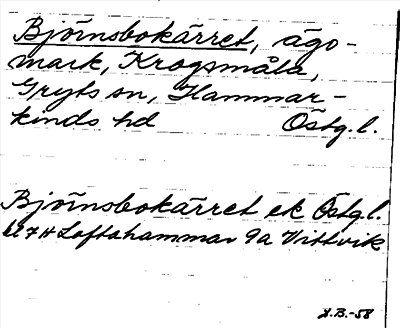 Björnsbokärret, ägo-
mark, Krogsmåla,
Gryts sn, Hammar-
kinds hd Östg.l.
Björnsbokärret ek Östg.l.
Loftahammar 9a Vittvik
J.B.-58